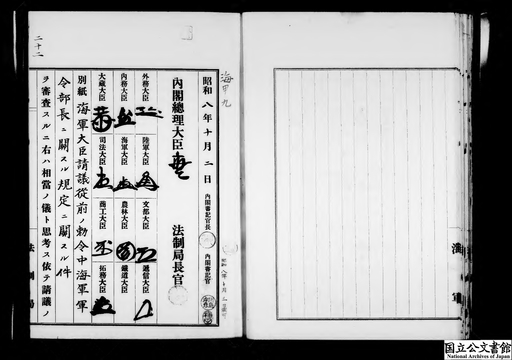 二十二
海甲九
昭和八年十月二日
内閣書記官長
内閣書記官
内閣總理大臣
法制局長官
外務大臣
陸軍大臣
文部大臣
遞信大臣
内務大臣
海軍大臣
農林大臣
鐵道大臣
大藏大臣
司法大臣
商工大臣
拓務大臣
別紙海軍大臣請議從前ノ勅令中海軍軍
令部長ニ關スル規定ニ關スル件
ヲ審査スルニ右ハ相當ノ儀ト思考ス依テ請議ノ
法制局
国立公文書館
National Archives of Japan